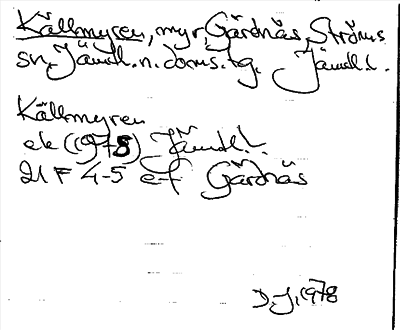 Källmyren, myr, Gärdnäs, Ströms
sn, Jämtl. n. doms. tg. Jämtl. l.
Källmyren
ek (1978) Jämtl. l.
21 F 4-5 e-f Gärdnäs
D. J. 1978